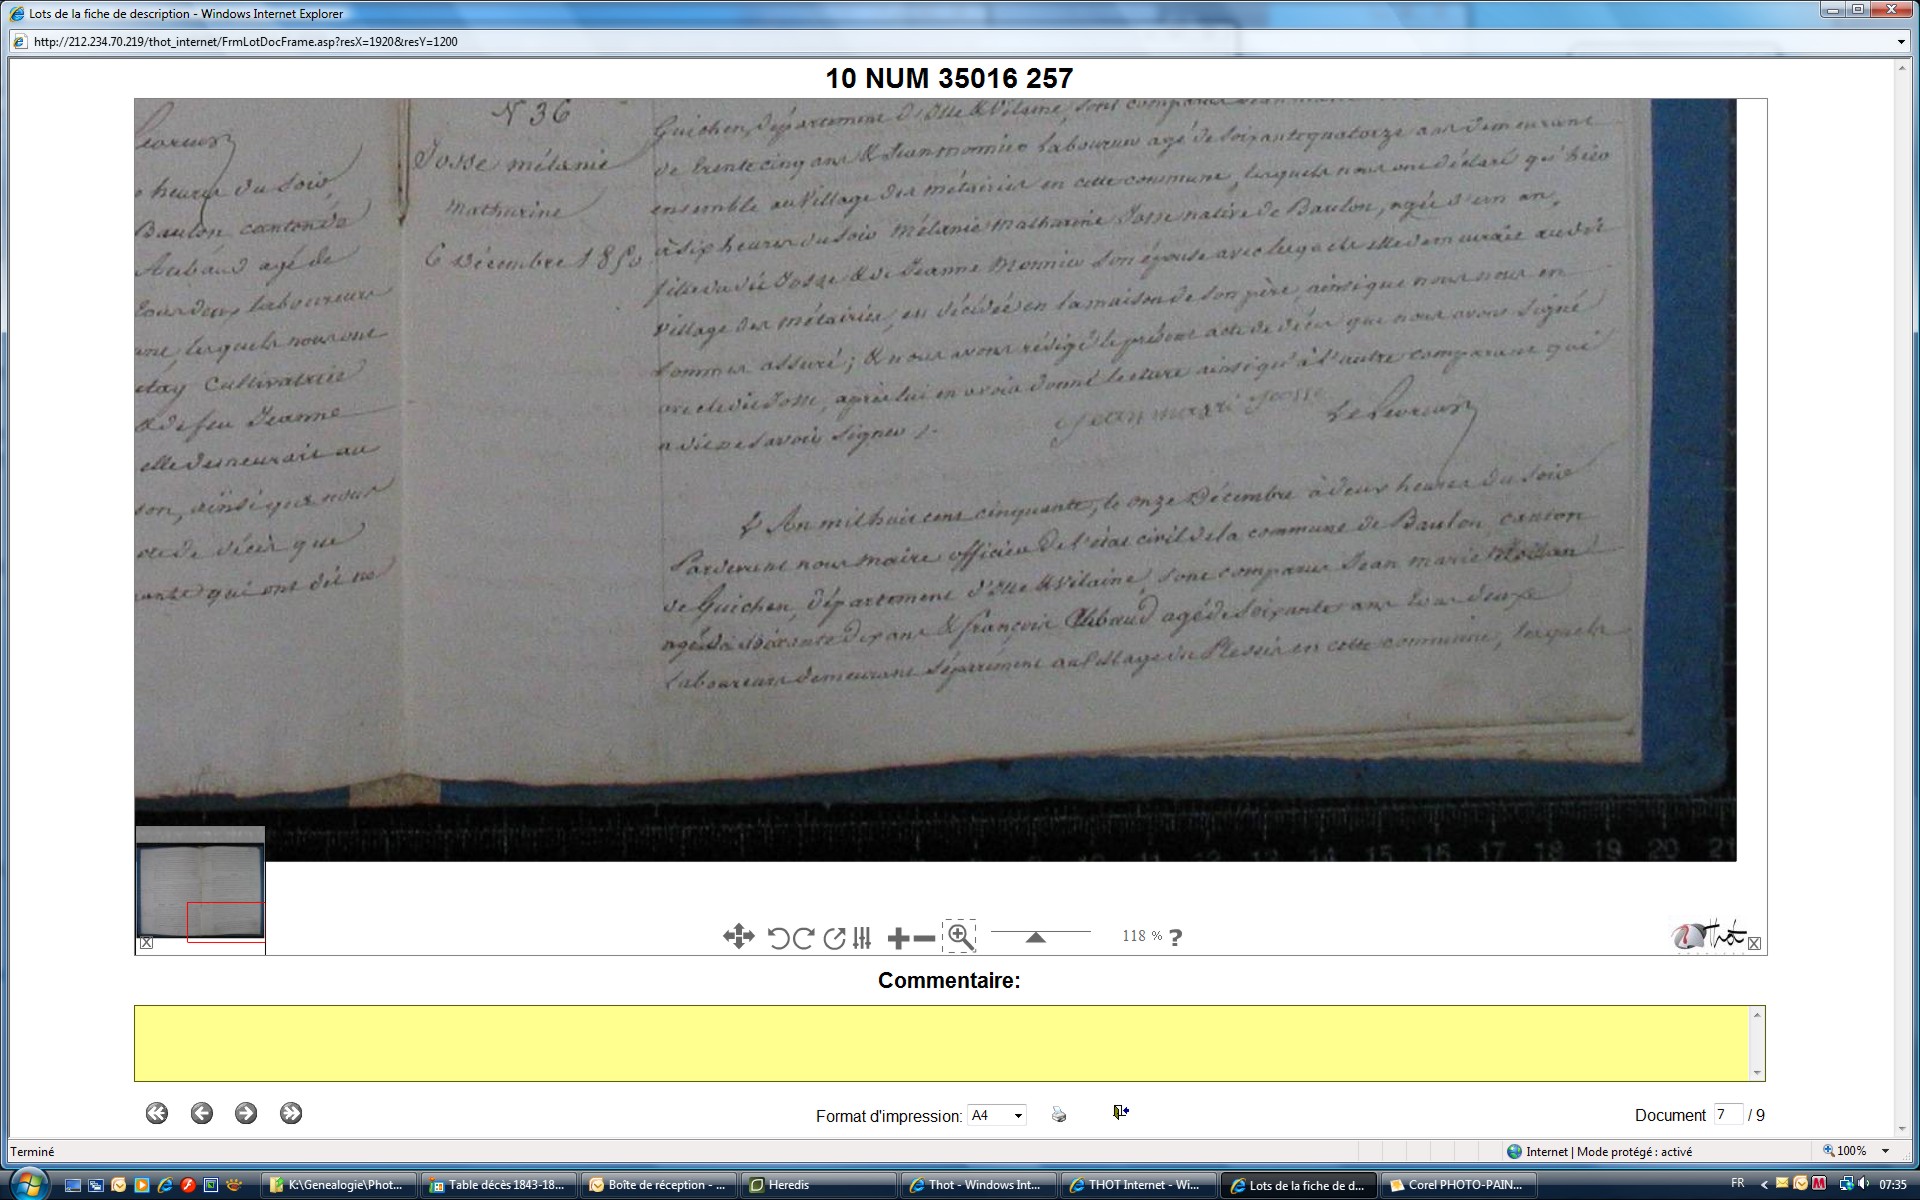 Lots de la fiche de description - Windows Internet Explorer
http://212.234.70.219/thot_internet/FrmLotDocFrame.asp?resX=1920&resY=1200
10 NUM 35016 257
heures du soir
Baulon canton de
agé de
tous deux laboureurs
lesquels nous ont
Cultivatrice
& de feu Jeanne
elle demeurait au
son, ainsi que nous
acte de décès que
qui ont dit ne
N° 36
Josse mélanie
mathurine
6 Décembre 1850
Guichen, département d'Ille & Vilaine, sont comparus Jean marie
de trente cinq ans & Jean monnier laboureur agé de soixante quatorze ans demeurant
ensemble au village des métairies en cette commune, lesquels nous ont déclaré qu'hier
à six heures du soir Mélanie Mathurine Josse native de Baulon, agée d'un an,
fille du dit Josse & de Jeanne Monnier son épouse avec lesquels elle demeurait au dit
village des métairies, est décédée en la maison de son père, ainsi que nous nous en
sommes assuré ; & nous avons rédigé le présent acte de décès que nous avons signé
avec le dit Josse, après lui en avoir donné lecture ainsi qu'à l'autre comparant qui
a dit ne savoir signer ./.
jean marie josse
L'An mil huit cent cinquante, le onze Décembre à deux heures du soir
Pardevant nous maire officier de l'état civil de la commune de Baulon, canton
de Guichen, département d'Ille & Vilaine, sont comparus Jean marie
agé de soixante dix ans & françois agé de soixante ans tous deux
laboureurs demeurant séparément au village du Plessis en cette commune, lesquels
10 11 12 13 14 15 16 17 18 19 20 21
118 % ?
Thot
Commentaire:
Format d'impression: A4
Document 7 / 9
Terminé
Internet | Mode protégé : activé
100%
K:\Genealogie\Phot...
Table décès 1843-18...
Boîte de réception - ...
Heredis
Thot - Windows Int...
THOT Internet - Wi...
Lots de la fiche de d...
Corel PHOTO-PAIN...
FR
07:35